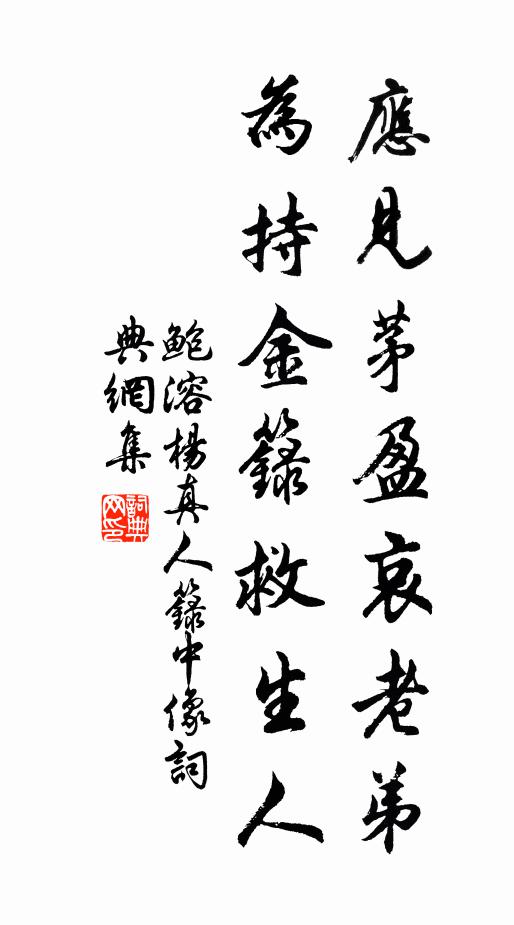 應見茅盈哀老弟
為持金籙救生人
鮑溶楊真人籙中像詞
典網集
詞典
网印